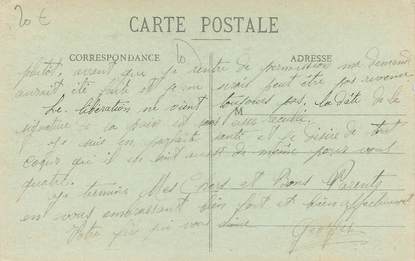 20 €
CARTE POSTALE
CORRESPONDANCE
ADRESSE
plutot, avant que je rentre de permission ma demande
aurait été faite et je me serais peut être pas revenu
La libération ne vient toujours pas, la date de la
signature de la paix est pas reculée.
Je suis en parfaite santé et je désire de tout
cœur qu'il en soit aussi de même pour vous
quatre.
Je termine Mes Chers et Bons Parents
en vous embrassant bien fort et bien affectueusement
Votre fils qui vous aime